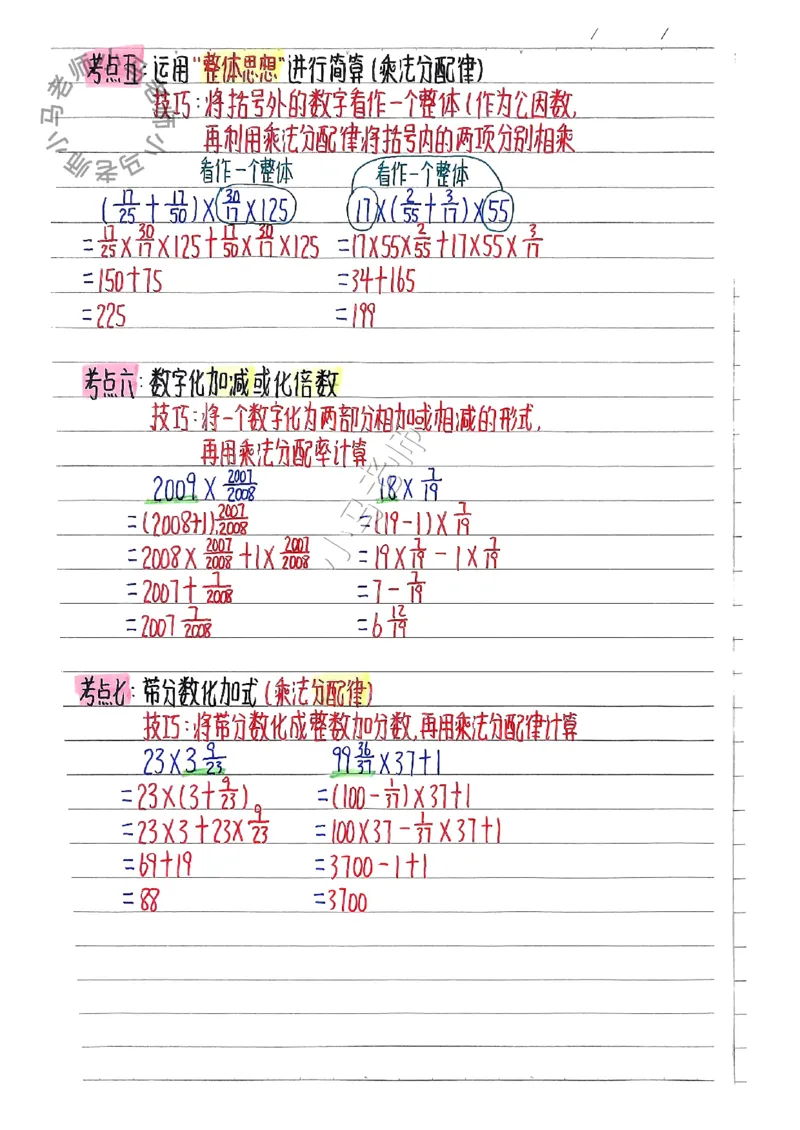 考点五:运用“整体思想”进行简算(乘法分配律)
技巧:将括号外的数字看作一个整体(作为公因数,
再利用乘法分配律将括号内的两项分别相乘
看作一个整体 看作一个整体
(17/25+17/50)×30/17×125 17×(2/55+3/17)×55
=17/25×30/17×125+17/50×30/17×125 =17×55×2/55+17×55×3/17
=150+75 =34+165
=225 =199
考点六:数字化加减或化倍数
技巧:将一个数字化为两部分相加或相减的形式,
再用乘法分配率计算
2009×2007/2008 18×7/19
=(2008+1)×2007/2008 =(19-1)×7/19
=2008×2007/2008+1×2007/2008 =19×7/19-1×7/19
=2007+7/2008 =7-7/19
=2007 7/2008 =6 12/19
考点七:带分数化加式(乘法分配律)
技巧:将带分数化成整数加分数,再用乘法分配律计算
23×3 9/23 99 36/37×37+1
=23×(3+9/23) =(100-1/37)×37+1
=23×3+23×9/23 =100×37-1/37×37+1
=69+19 =3700-1+1
=88 =3700
小马老师小马老师小马老师
小马老师